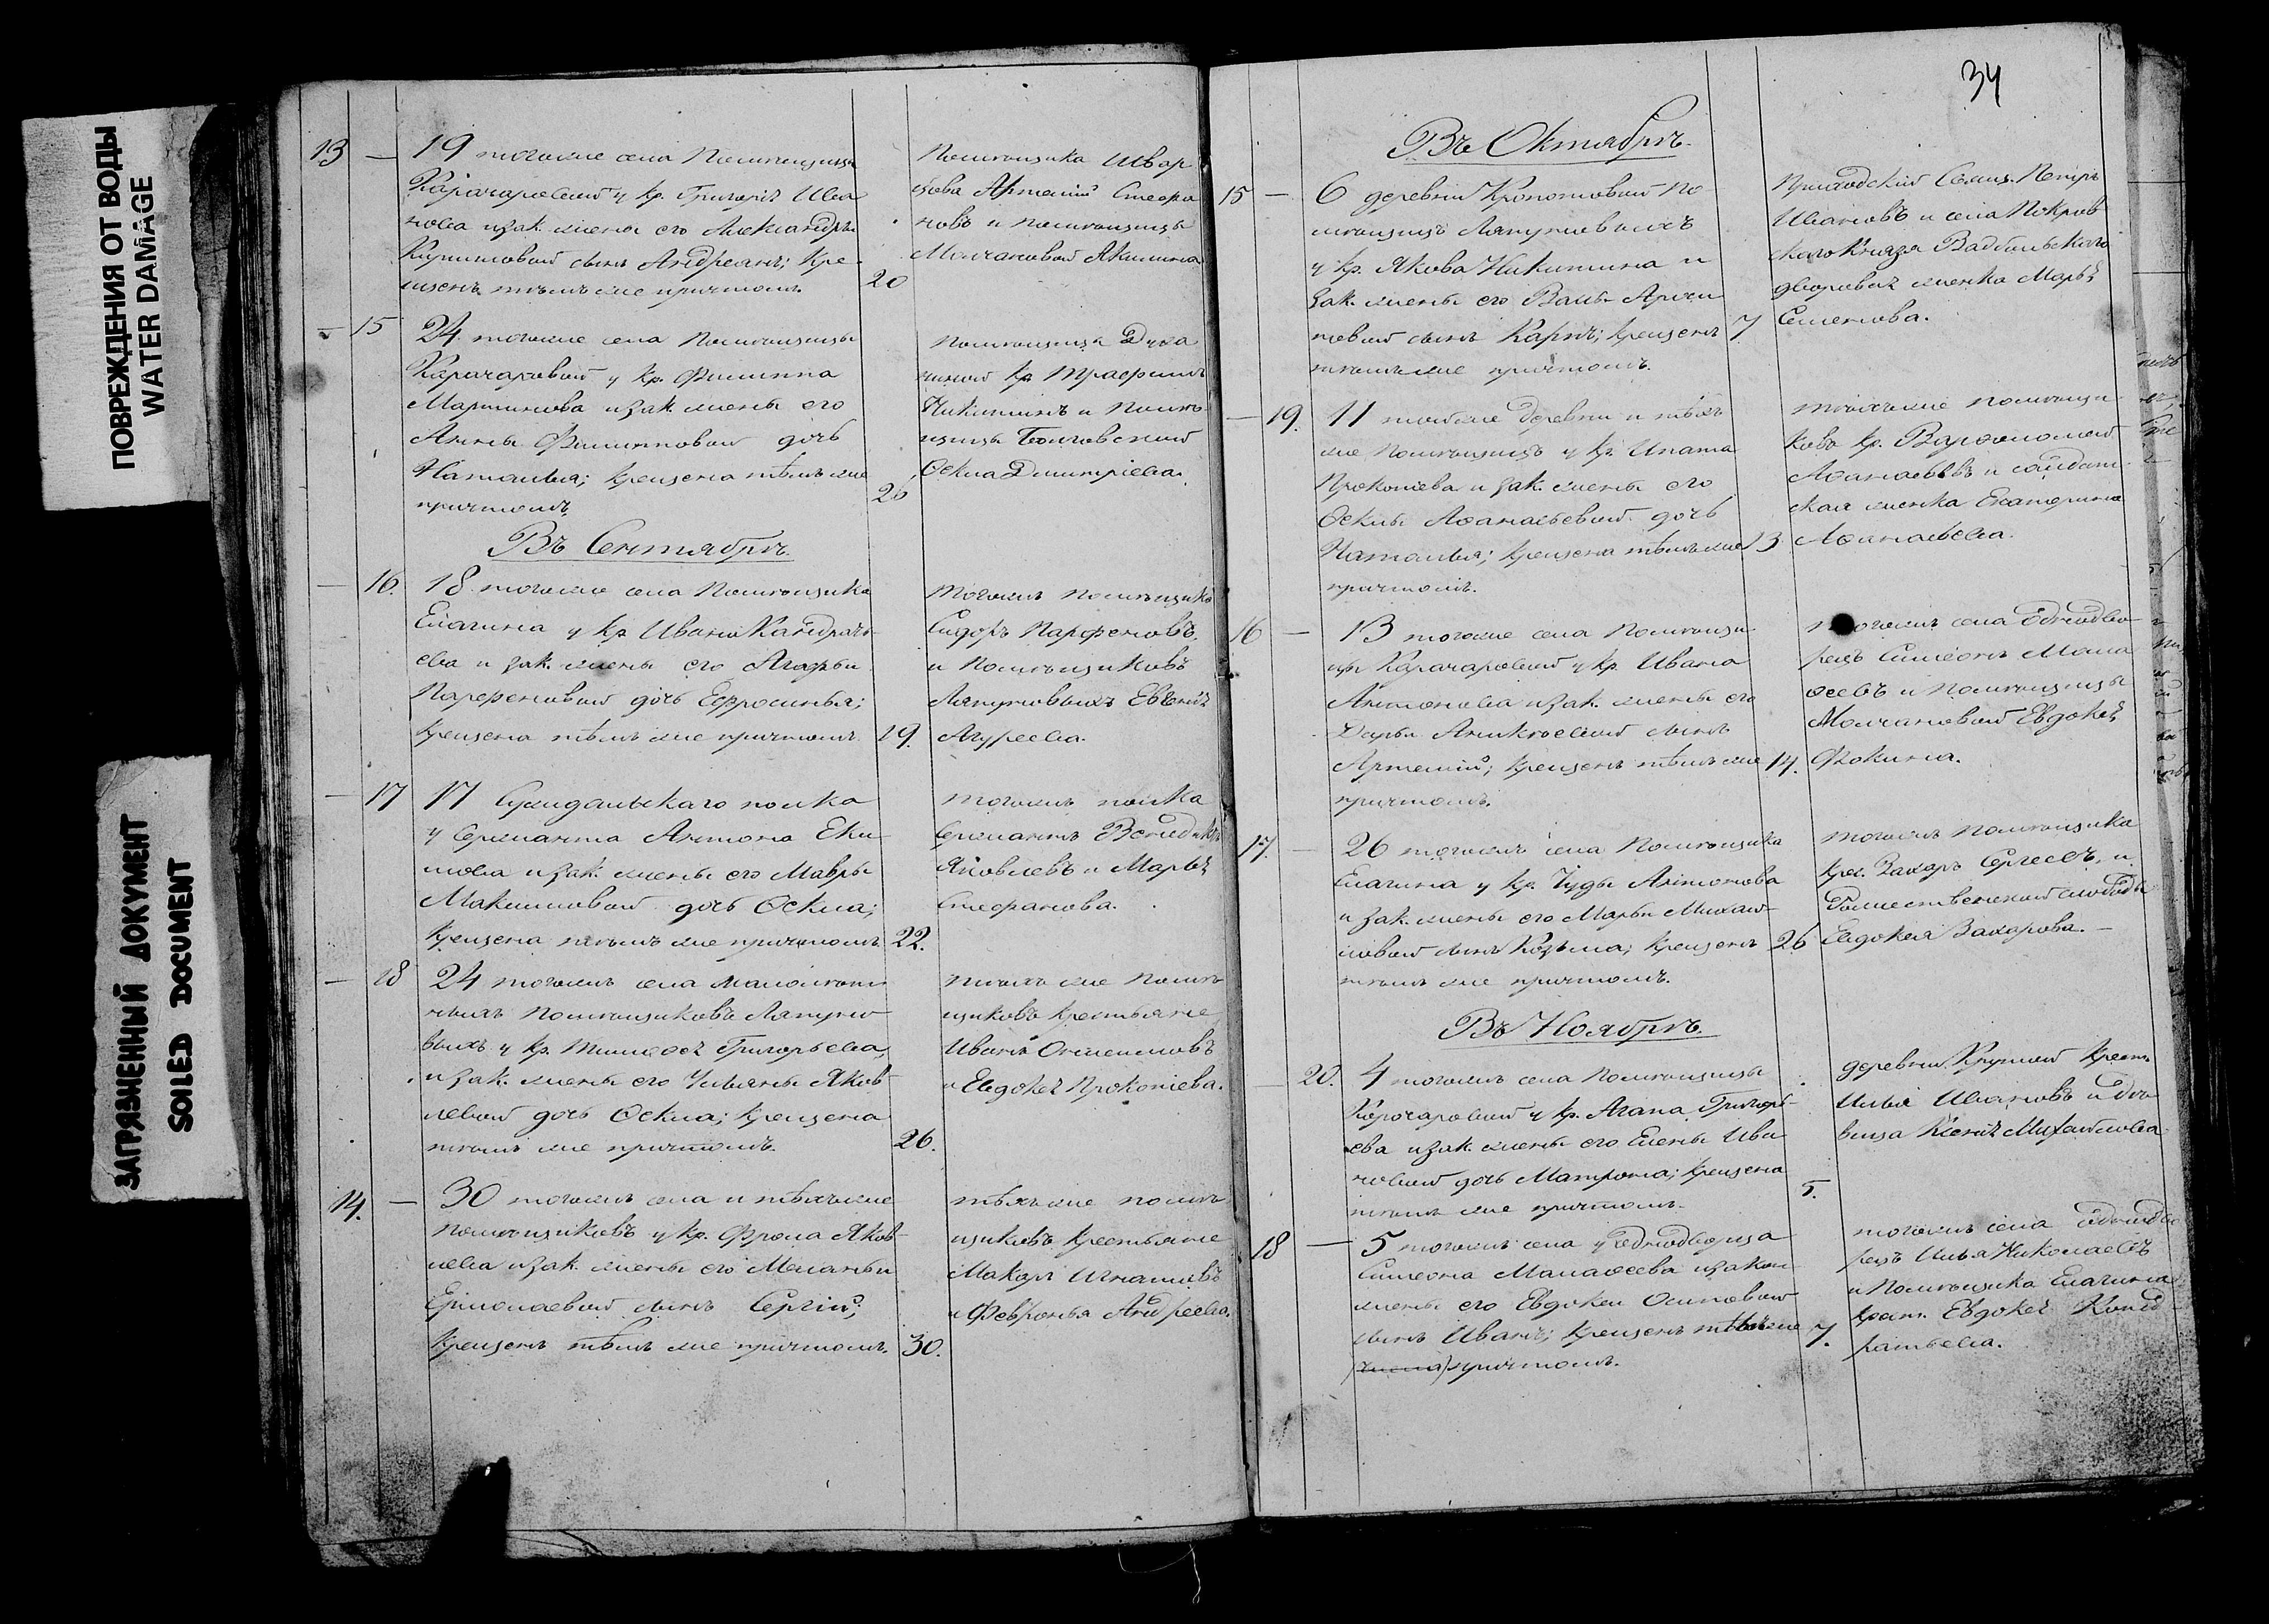 ПОВРЕЖДЕНИЯ ОТ ВОДЫ
WATER DAMAGE
ЗАГРЯЗНЕННЫЙ ДОКУМЕНТ
SOILED DOCUMENT
13 — 19 тогоже села Помѣщицы
Карачаровой у кр. Григорія Ива
нова и зак. жены его Александры
сынъ Андреянъ; кре
щенъ тѣмъ же причтомъ. 20
Помѣщика Швар
цова Артемій Стефа
новъ и помѣщицы
Молчановой Акилина
— 15 24 тогоже села Помѣщицы
Карачаровой у кр. Филиппа
Мартинова и зак. жены его
Анны Филипповой дочь
Наталья; крещена тѣмъ же
причтомъ. 26
помѣщицы
кр. Трофимъ
Никитинъ и Помѣ
щицы
Ѳекла Дмитріева.
Въ Сентябрѣ.
— 16. 18 тогоже села Помѣщика
Елагина у кр. Ивана Кандрать
ева и зак. жены его Агафьи
Парфеновой дочь Ефросинья;
крещена тѣмъ же причтомъ. 19.
тогожъ помѣщика
Сидоръ Парфеновъ,
и Помѣщиковъ
Ляпуновыхъ Евгенія
Агуреева.
— 17 17 Суждальскаго полка
у Сержанта Антона Еки
мова и зак. жены его Мавры
Максимовой дочь Ѳекла;
крещена тѣмъ же причтомъ. 22.
тогожъ полка
Сержантъ Венедиктъ
Яковлевъ и Марья
Стефанова.
— 18 24 тогожъ села малолѣт
ныхъ Помѣщиковъ Ляпуно
выхъ у кр. Тимоѳея Григорьева,
и зак. жены его Ульяны Яков
левой дочь Ѳекла; крещена
тѣмъ же причтомъ. 26.
тѣхъ же помѣ
щиковъ крестьяне
Иванъ
и Евдокея Прокопіева.
14. — 30 тогожъ села и тѣхъже
помѣщиковъ у кр. Фрола Яков
лева и зак. жены его Меланьи
Ермолаевой сынъ Сергій;
крещенъ тѣмъ же причтомъ. 30.
тѣхъже помѣ
щиковъ крестьяне
Макаръ Игнатовъ
и Февронья Андреева.
34
Въ Октябрѣ.
15 — 6 деревни Кропотовой По
мѣщицъ Ляпуновыхъ
у кр. Якова Никитина и
зак. жены его
сынъ Карпъ; крещенъ 7
тѣмъ же причтомъ.
Приходскій Свящ. Петръ
Ивановъ и села Покров
скаго Князя Вадбольскаго
дворовая женка Марья
Семенова.
— 19. 11 тойже деревни и тѣхъ
же Помѣщицъ у кр. Ипата
Прокопіева и зак. жены его
Ѳеклы Аѳанасьевой дочь
Наталья; крещена тѣмъ же 13
причтомъ.
тѣхъже помѣщи
ковъ кр. Варѳоломей
Аѳанасьевъ и солдат
ская женка Екатерина
Аѳанасьева.
16 — 13 тогоже села Помѣщи
цы Карачаровой у кр. Ивана
Антонова и зак. жены его
Дарьи Аникѣевой сынъ
Артемій; крещенъ тѣмъ же 14.
причтомъ.
тогожъ села Однодво
рецъ Симеонъ Мана
ѳеевъ и помѣщицы
Молчановой Евдокея
Фокина.
17. — 26 тогожъ села Помѣщика
Елагина у кр. Антонова
и зак. жены его Марьи Михай
ловой сынъ Козьма; крещенъ 26
тѣмъ же причтомъ.
тогожъ помѣщика
крес. Захаръ Сергеевъ, и
Рожественской слободы
Евдокея Захарова. —
Въ Ноябрѣ.
— 20. 4 тогожъ села Помѣщицы
Карачаровой у кр. Агапа Григорь
ева и зак. жены его Елены Ива
новой дочь Матрона; крещена 5.
тѣмъ же причтомъ.
деревни крест.
Илья Ивановъ и дѣ
вица Ксенія Михайлова
18 — 5 тогожъ села у однодворца
Симеона Манаѳеева и закон.
жены его Евдокеи Осиповой
сынъ Иванъ; крещенъ тѣмъже 7.
причтомъ.
тогожъ села однодво
рецъ Илья Николаевъ
и Помѣщика Елагина
крест. Евдокея Конд
ратьева.